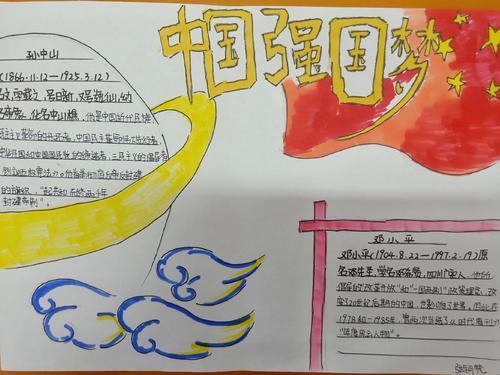 中国强国梦
孙中山
(1866.11.12—1925.3.12)
名文,字载之,号日新,又号逸仙,幼
名帝象,化名中山樵,他是中国近代民族
民主主义革命的开拓者,中国民主革命伟大先行者,
中华民国和中国国民党的缔造者,三民主义的倡导者
封建帝制"。
邓小平
邓小平(1904.8.22—1997.2.19)原
名邓先圣,学名邓希贤,四川广安人,他所
倡导的"改革开放"和"一国两制"政策理念,改
变了20世纪后期的中国,也影响了世界。因此在
1978和一1985年,曾两次当选了《时代周刊》
"年度风云人物"。